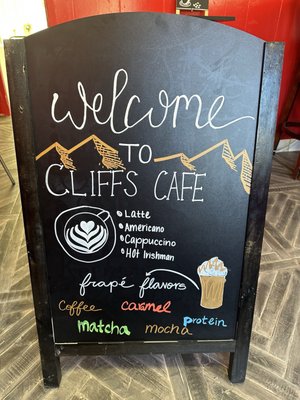 welcome
TO
CLIFFS CAFE
Latte
Americano
Cappuccino
Hot Irishman
frapé flavors
Coffee caramel
matcha mocha protein